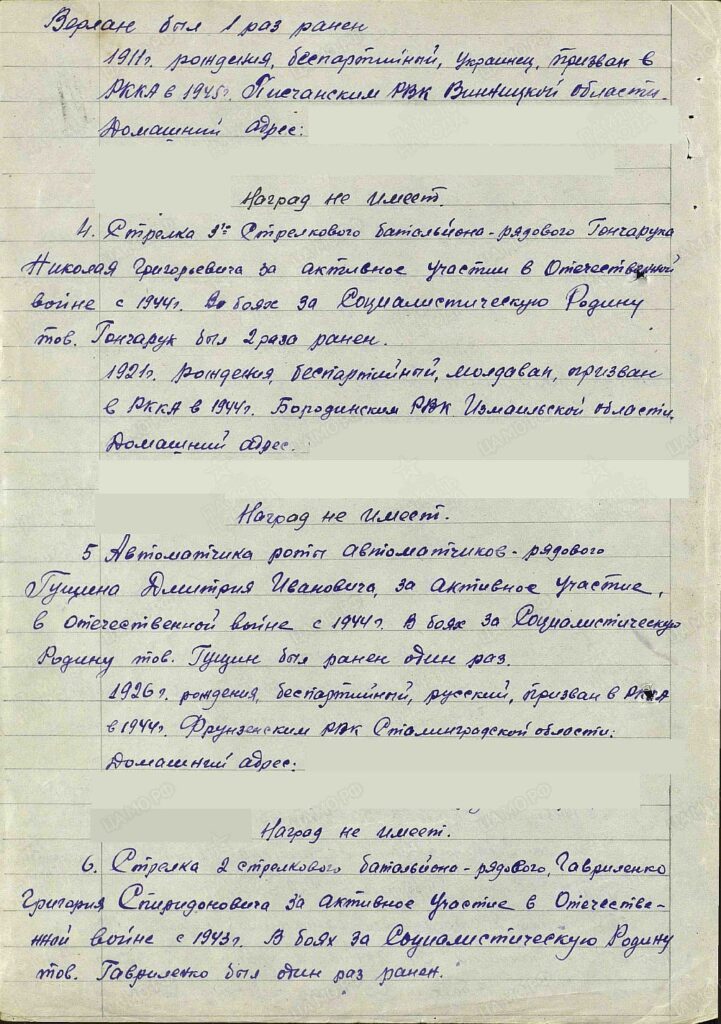 Верлан был 1 раз ранен
1911г. рождения, беспартийный, украинец, призван в
РККА в 1945г. Писчанским РВК Винницкой области.
Домашний адрес:
Наград не имеет.
4. Стрелка 3го Стрелкового батальйона-рядового Гончарука
Николая Григорьевича за активное участии в Отечественной
войне с 1944г. Во боях за Социалистическую Родину
тов. Гончарук был 2 раза ранен.
1921г. рождения, беспартийный, молдаван, призван
в РККА в 1944г. Бородинским РВК Измаильской области.
Домашний адрес.
Наград не имеет.
5 Автоматчика роты автоматчиков-рядового
Гущина Дмитрия Ивановича, за активное участие,
в отечественной войне с 1944г. В боях за Социалистическую
Родину тов. Гущин был ранен один раз.
1926г. рождения, беспартийный, русский, призван в РККА
в 1944г. Фрунзенским РВК Сталинградской области.
Домашний адрес:
Наград не имеет.
6. Стрелка 2 стрелкового батальйона-рядового, Гавриленко
Григория Спиридоновича за активное участие в Отечестве-
нной войне с 1943г. В боях за Социалистическую Родину
тов. Гавриленко был один раз ранен.